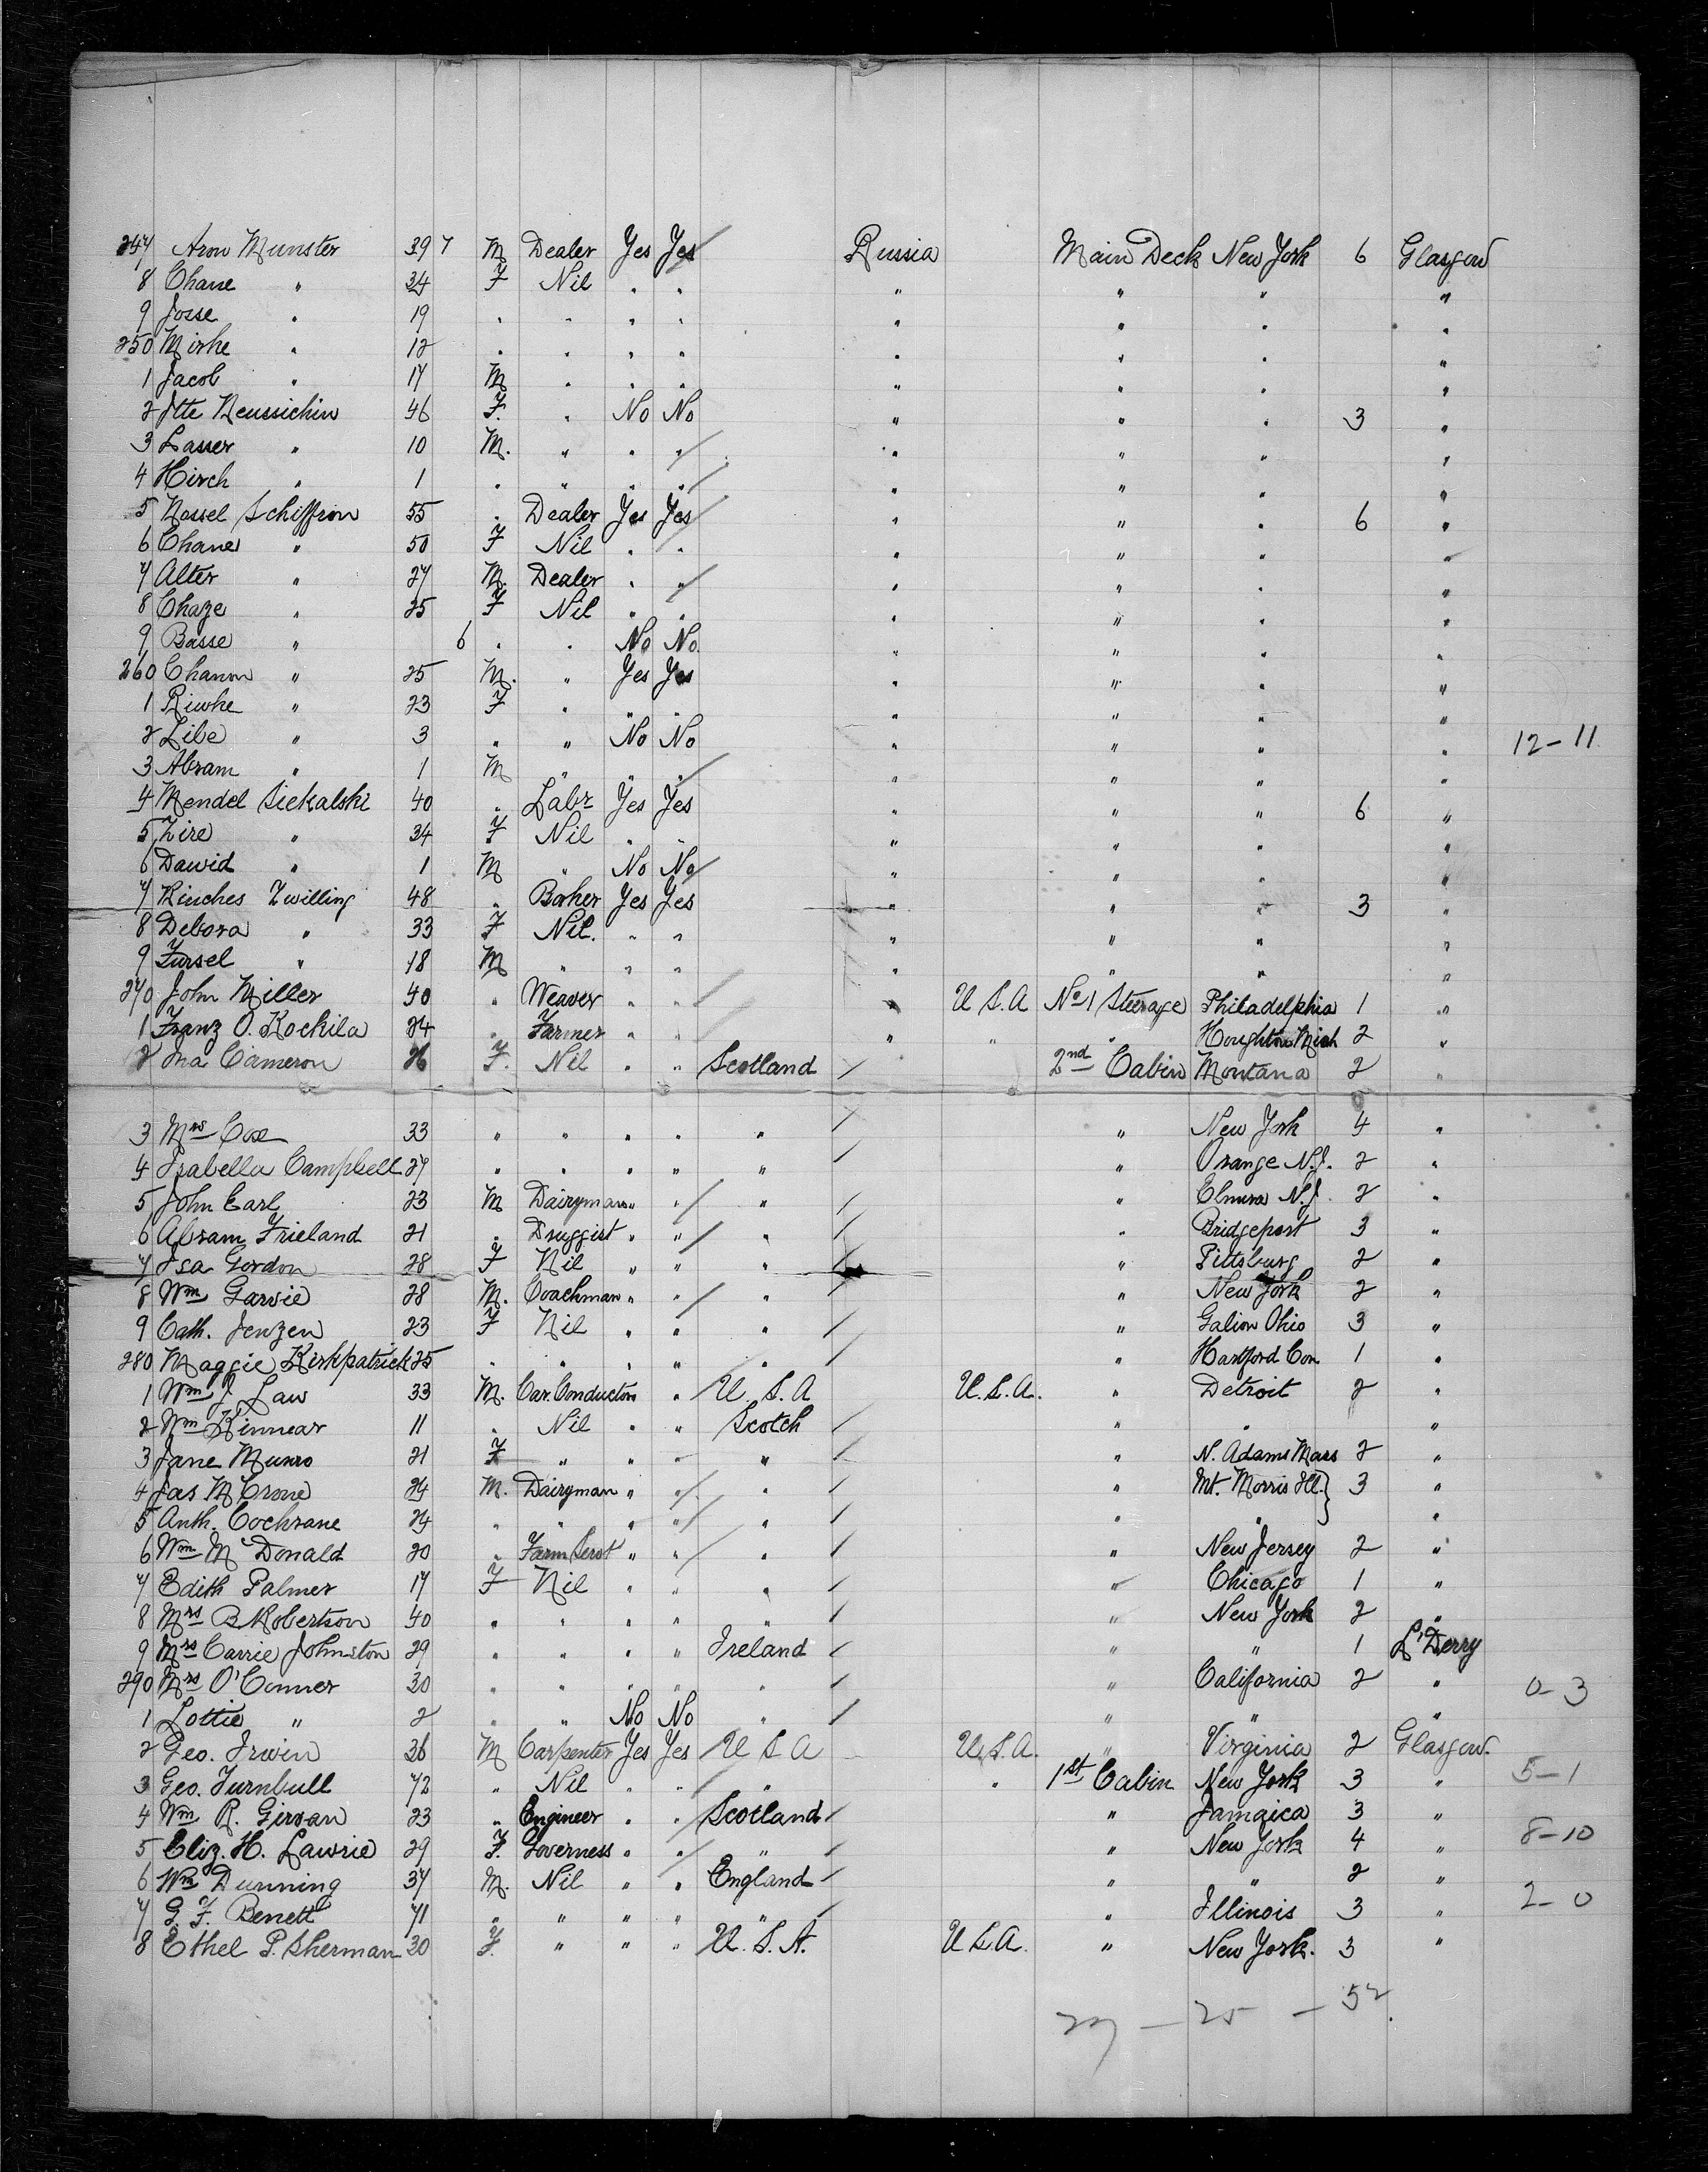 247 Aron Munster 39 7 M Dealer Yes Yes Russia Main Deck New York 6 Glasgow
8 Chane " 34 F Nil " " " " " "
9 Josse " 19 " " " " " " " "
250 Mirke " 12 " " " " " " " "
1 Jacob " 17 M " " " " " " "
2 Itte Neussichin 46 F. " No No " " " 3 "
3 Lasser " 10 M. " " " " " " "
4 Hirch " 1 " " " " " " " "
5 Nossel Schiffrin 55 " Dealer Yes Yes " " " 6 "
6 Chane " 50 F Nil " " " " " "
7 Alter " 27 M. Dealer " " " " " "
8 Chaze " 25 F Nil " " " " " "
9 Basse " 6 " " No No " " " "
260 Chanon " 25 M. " Yes Yes " " " "
1 Riwke " 23 F " " " " " " "
2 Libe " 3 " " No No " " " " 12-11
3 Abram " 1 M " " " " " " "
4 Mendel Siekalski 40 " Labr Yes Yes " " " 6 "
5 Zire " 34 F Nil " " " " " "
6 Dawid " 1 M " No No " " " "
7 Rinches Zwilling 48 " Baker Yes Yes " " " 3 "
8 Debora " 33 F Nil. " " " " " "
9 Fursel " 18 M " " " " " " "
270 John Miller 40 " Weaver " " " U S.A No 1 Steerage Philadelphia 1 "
1 Franz O. Kockila 24 " Farmer " " " " " Houghton Mich 2 "
2 Ina Cameron 26 F. Nil " " Scotland 2nd Cabin Montana 2 "
3 Mrs Cox 33 " " " " " " New York 4 "
4 Isabella Campbell 27 " " " " " " Orange N.J. 2 "
5 John Earl 23 M Dairyman " " " " Elmira N.J. 2 "
6 Abram Frieland 21 " Druggist " " " " Bridgeport 3 "
7 Isa Gordon 28 F Nil " " " " Pittsburg 2 "
8 Wm Garvie 28 M. Coachman " " " " New York 2 "
9 Cath. Jenzen 23 F Nil " " " " Galion Ohio 3 "
280 Maggie Kirkpatrick 25 " " " " " " Hartford Con 1 "
1 Wm J. Law 33 M. Car. Conductor " " U. S. A U.S.A. " Detroit 2 "
2 Wm Kinnear 11 " Nil " " Scotch " " "
3 Jane Munro 21 F " " " " " N. Adams Mass 2 "
4 Jas McCrone 24 M. Dairyman " " " " Mt. Morris Ill. } 3 "
5 Anth. Cochrane 24 " " " " " " " "
6 Wm McDonald 20 " Farm Servt " " " " New Jersey 2 "
7 Edith Palmer 17 F Nil " " " " Chicago 1 "
8 Mrs B. Robertson 40 " " " " " " New York 2 "
9 Mrs Carrie Johnston 29 " " " " Ireland " " 1 L'Derry
290 Mrs O'Conner 30 " " " " " " California 2 " 0-3
1 Lottie " 2 " " No No " " " "
2 Geo. Irwin 36 M Carpenter Yes Yes U S A U.S.A. " Virginia 2 Glasgow.
3 Geo. Turnbull 72 " Nil " " " " 1st Cabin New York 3 " 5-1
4 Wm R. Girvan 23 " Engineer " " Scotland " Jamaica 3 "
5 Eliz. H. Lawrie 29 F. Governess " " " " New York 4 " 8-10
6 Wm Dunning 37 M. Nil " " England " " 2 "
7 G. F. Benett 71 " " " " " " Illinois 3 " 2-0
8 Ethel P. Sherman 30 F. " " " U. S. A. U S.A. " New York. 3 "
27 - 25 - 52